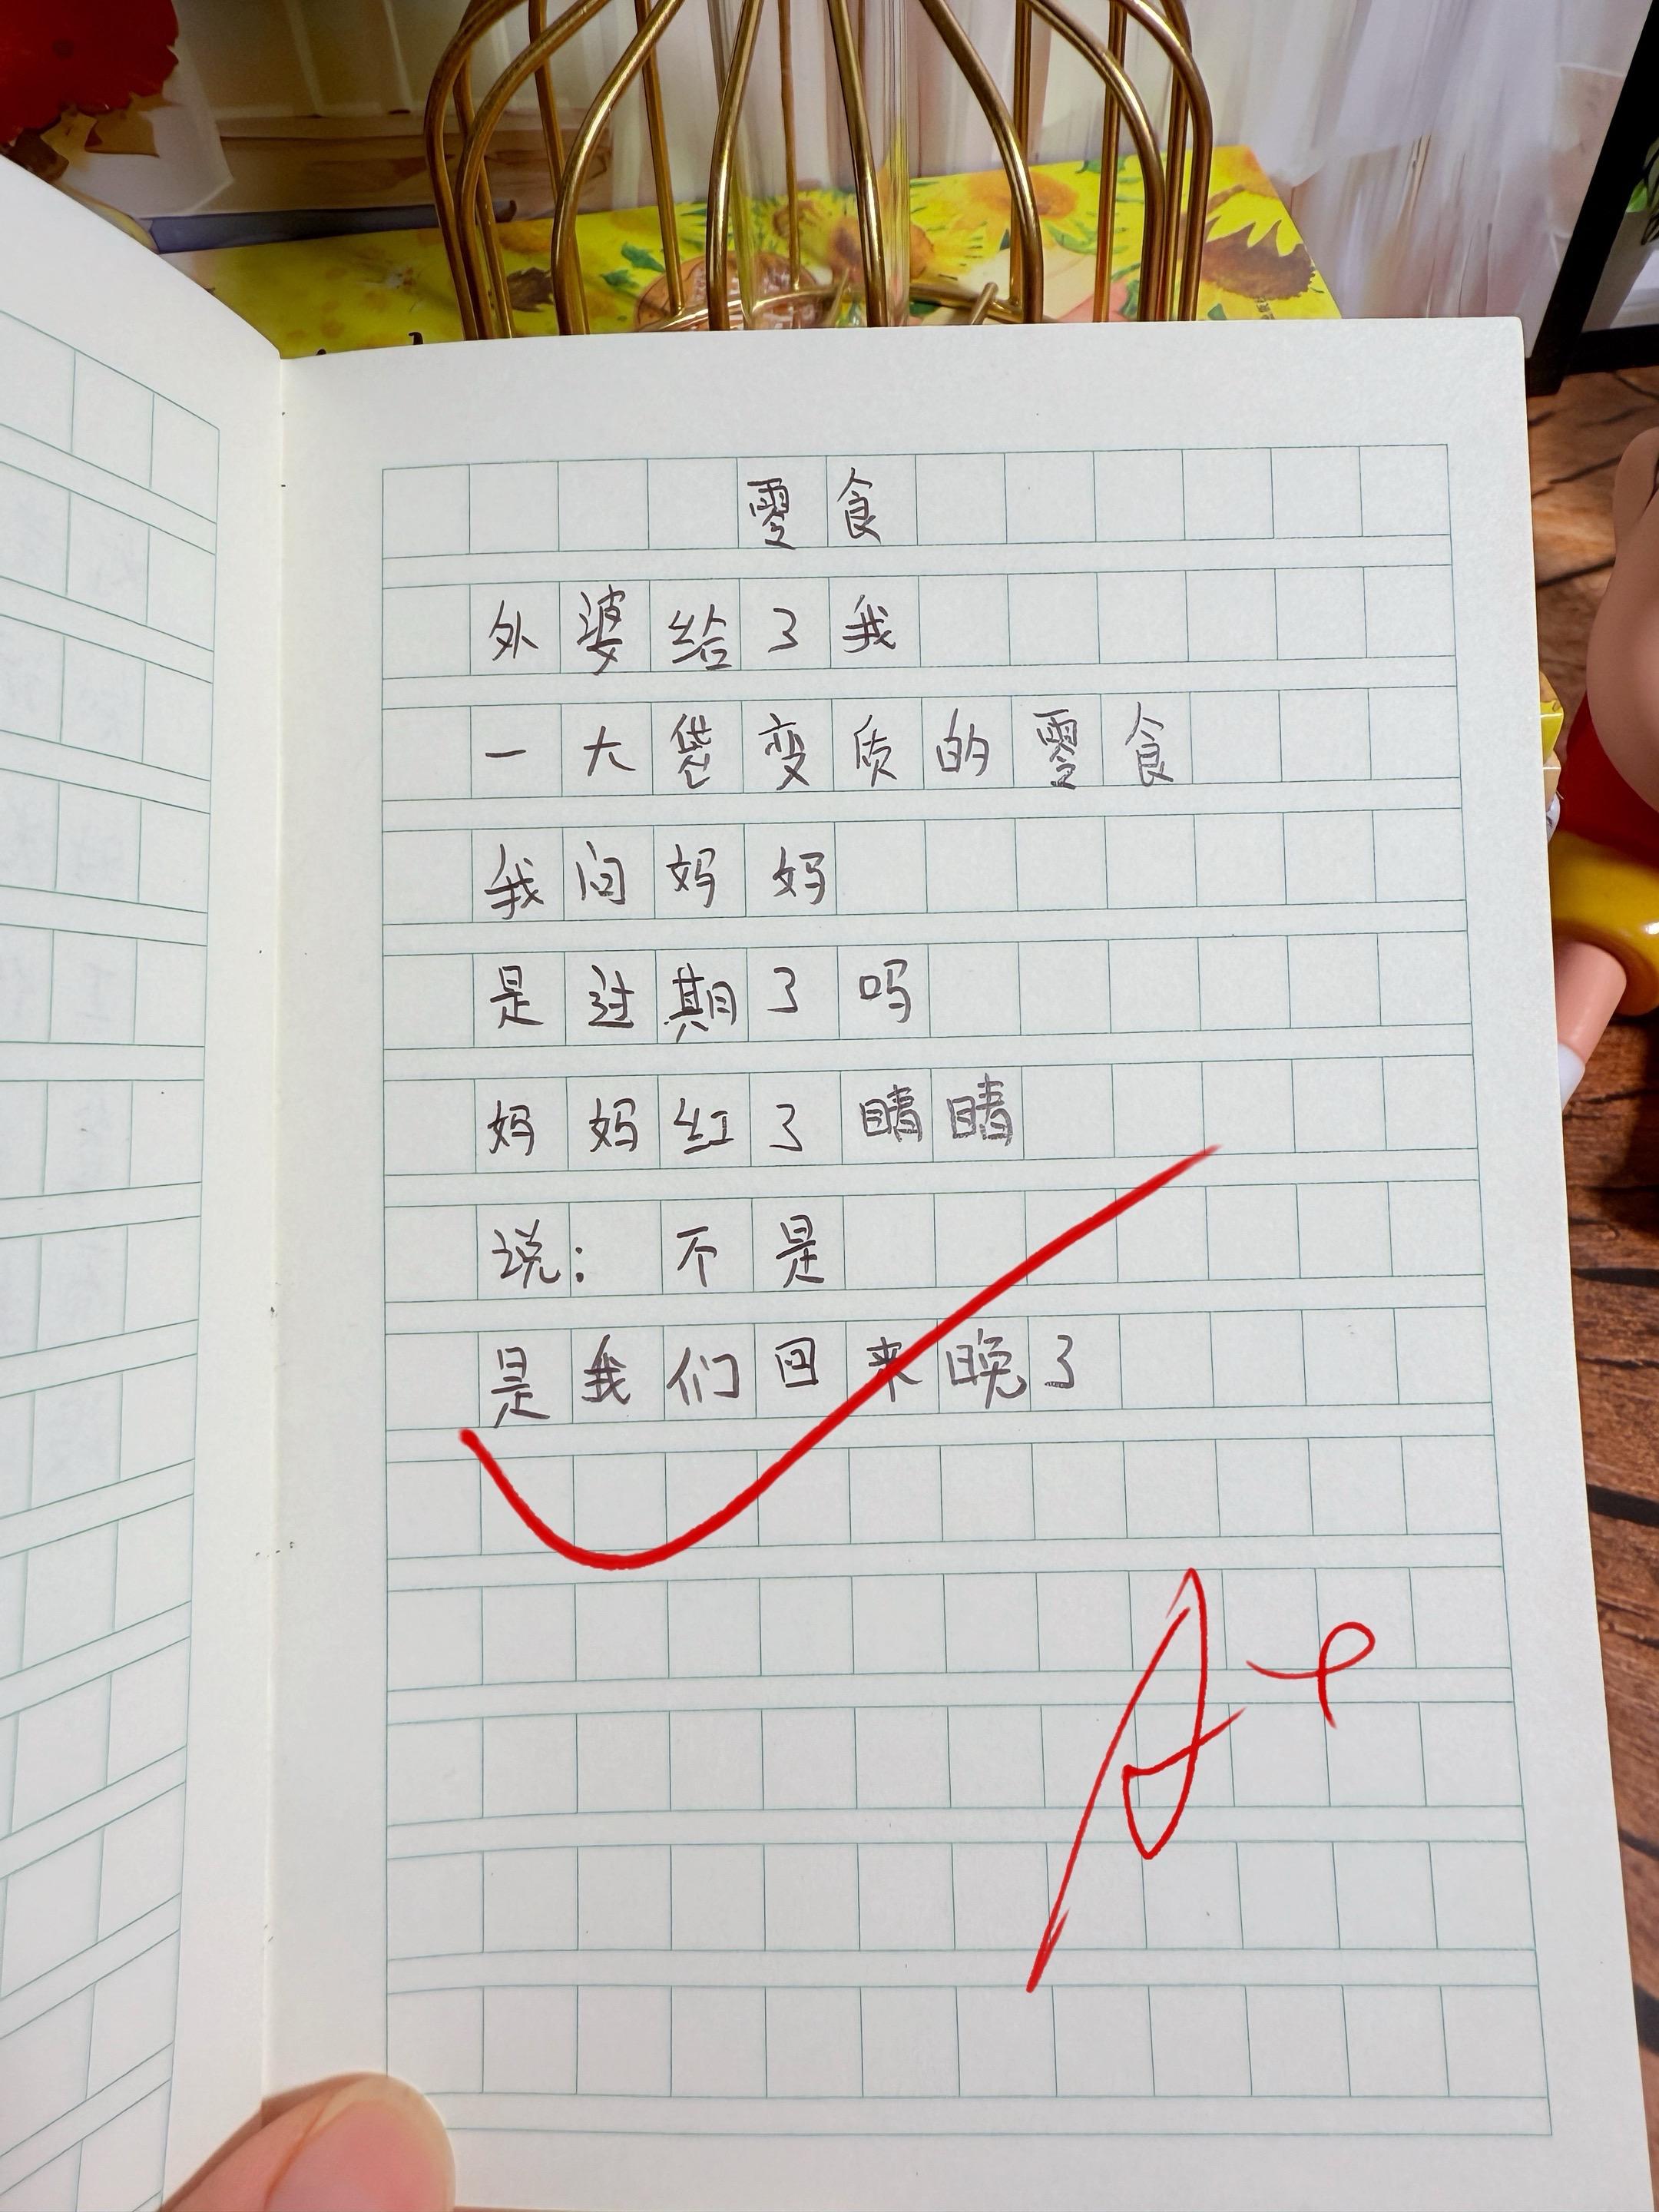 零食
外婆给了我
一大袋变质的零食
我问妈妈
是过期了吗
妈妈红了睛睛
说：不是
是我们回来晚了
A+